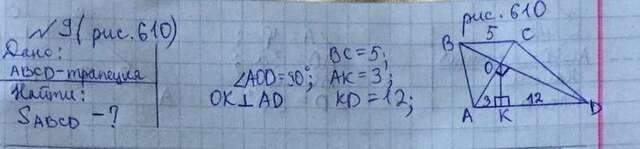 №9 (рис.610)
Дано:
ABCD-трапеция
Найти:
SABCD -?
∠AOD=90°;
OK⊥AD
BC=5;
AK=3;
KD=12;
рис.610
B 5 C
O
A 3 K 12 D